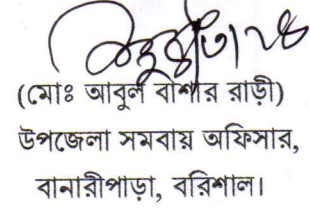 (মোঃ আবুল বাশার রাড়ী)
উপজেলা সমবায় অফিসার,
বানারীপাড়া, বরিশাল।